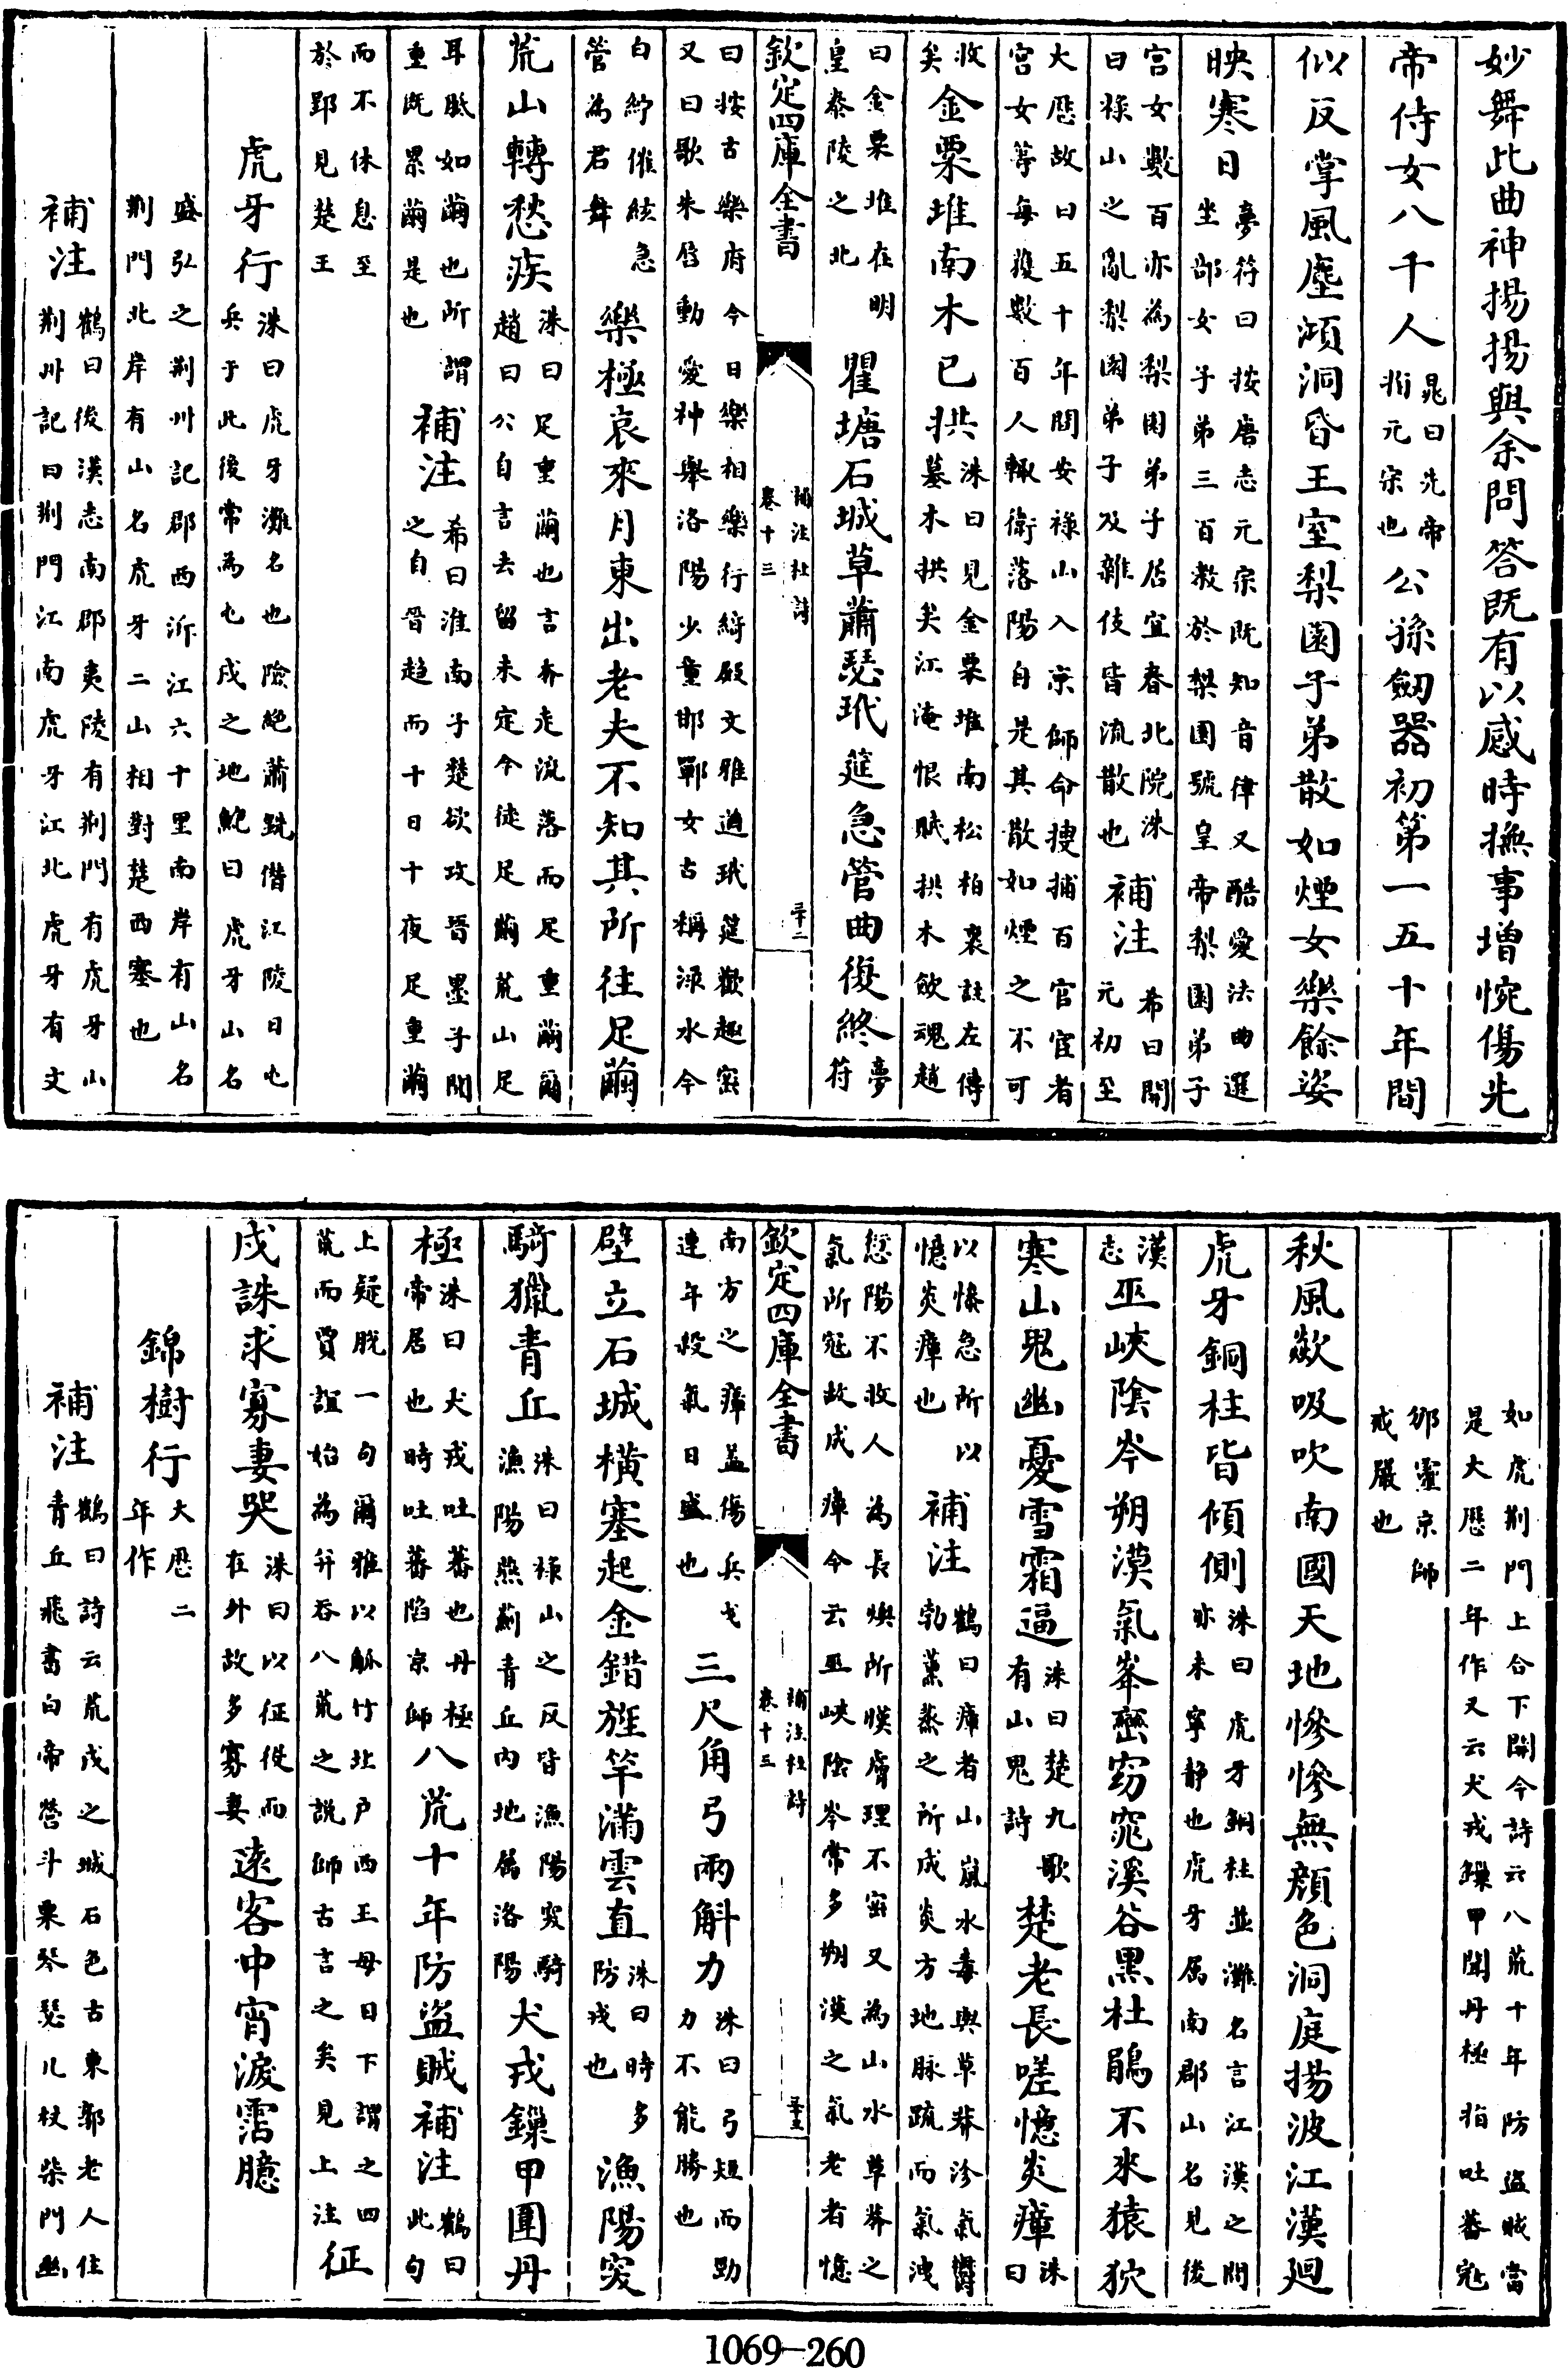 妙舞此曲神揚揚與余問答既有以感時撫事增惋傷先
帝侍女八千人晁曰先帝指元宗也公孫劒器初第一五十年間
似反掌風塵澒洞昏王室梨園子弟散如煙女樂餘姿
映寒日夢符曰按唐志元宗既知音律又酷愛法曲選坐部女子弟三百教於梨園號皇帝梨園弟子
宮女數百亦為梨園弟子居宜春北院洙曰祿山之亂梨園弟子及雜伎皆流散也補注希曰開元初至
大厯故曰五十年間安祿山入京師命捜捕百官宦者宮女等每獲數百人輒衛落陽自是其散如煙之不可
收矣金粟堆南木已拱洙曰見金粟堆南松柏裏註左傳墓木拱矣江淹恨賦拱木歛魂趙
曰金粟堆在明皇泰陵之北瞿塘石城草蕭瑟玳筵急管曲復終夢符
欽定四庫全書 補注杜詩 卷十三 三十二
曰按古樂府今日樂相樂行綺殿文雅遒玳筵歡趣宻又曰歌朱唇動愛神舉洛陽少童邯鄲女古稱渌水今
白紵催絃急管為君舞樂極哀來月東出老夫不知其所往足繭
荒山轉愁疾洙曰足重繭也言奔走流落而足重繭爾趙曰公自言去留未定今徒足繭荒山足
耳胝如繭也所謂重既累繭是也補注希曰淮南子楚欲攻晉墨子聞之自晉趍而十日十夜足重繭
而不休息至於郢見楚王
虎牙行洙曰虎牙灘名也險絶蕭銑僭江陵日屯兵于此後常為屯戍之地鮑曰虎牙山名
盛弘之荆州記郡西泝江六十里南岸有山名荆門北岸有山名虎牙二山相對楚西塞也
補注鶴曰後漢志南郡夷陵有荆門有虎牙山荆州記曰荆門江南虎牙江北虎牙有文
如虎荆門上合下開今詩云八荒十年防盜賊當是大厯二年作又云犬戎鏁甲聞丹極指吐蕃寇
邠靈京師戒嚴也
秋風欻吸吹南國天地慘慘無顔色洞庭揚波江漢廻
虎牙銅柱皆傾側洙曰虎牙銅柱並灘名言江漢之間亦未寧静也虎牙属南郡山名見後
漢志巫峽隂岑朔漠氣峯巒窈窕溪谷黑杜鵑不來猿狖
寒山鬼幽憂雪霜逼洙曰楚九歌有山鬼詩楚老長嗟憶炎瘴洙曰
以慘急所以憶炎瘴也補注鶴曰瘴者山嵐水毒與草莽沴氣鬱勃薰蒸之所成炎方地脉疏而氣洩
愆陽不收人為長燠所熯膚理不宻又為山水草莽之氣所寇故成瘴今云巫峽隂岑常多朔漠之氣老者憶
欽定四庫全書 補注杜詩 卷十三 三十三
南方之瘴益傷兵戈連年殺氣日盛也三尺角弓兩斛力洙曰弓短而勁力不能勝也
壁立石城橫塞起金錯旌竿滿雲直洙曰時多防戎也漁陽突
騎獵青丘洙曰祿山之反皆漁陽突騎漁陽燕薊青丘内地属洛陽犬戎鏁甲圍丹
極洙曰犬戎吐蕃也丹極帝居也時吐蕃陷京師八荒十年防盜賊補注鶴曰此句
上疑脫一句爾雅以觚竹北户西王母日下謂之四荒而賈誼始為并吞八荒之說師古言之矣見上注征
戍誅求寡妻哭洙曰以征役而在外故多寡妻遠客中宵淚霑臆
錦樹行大厯二年作
補注鶴曰詩云荒戍之城石色古東郭老人住青丘飛書白帝營斗粟琴瑟几杖柴門幽
1069-260